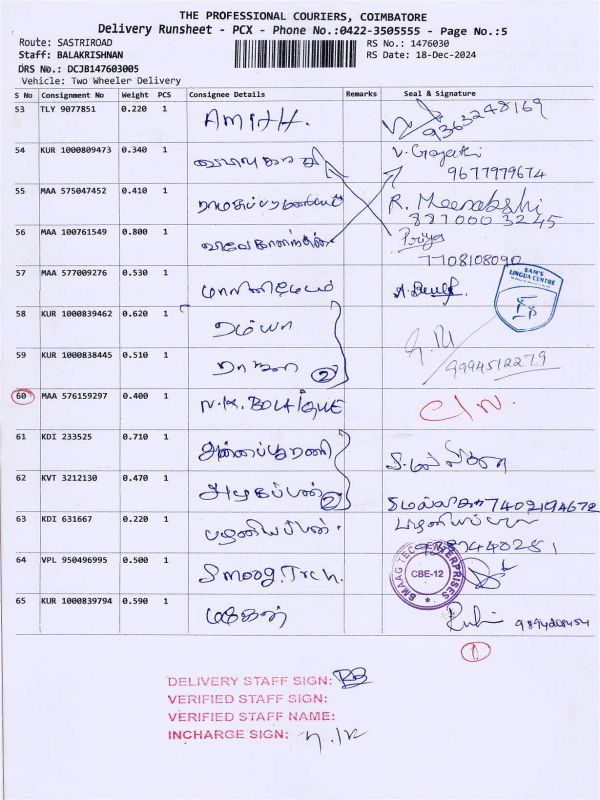 THE PROFESSIONAL COURIERS, COIMBATORE
Delivery Runsheet - PCX - Phone No.:0422-3505555 - Page No.:5
Route: SASTRIROAD RS No.: 1476030
Staff: BALAKRISHNAN RS Date: 18-Dec-2024
DRS No.: DCJB147603005
Vehicle: Two Wheeler Delivery
S No Consignment No Weight PCS Consignee Details Remarks Seal & Signature
53 TLY 9077851 0.220 1 AMITH. 9363248169
54 KUR 1000809473 0.340 1 V. Gayathi
9677979674
55 MAA 575047452 0.410 1 R. Meenakshi
837000 3245
56 MAA 100761549 0.800 1 Priya
7708108090
57 MAA 577009276 0.530 1
SAM'S
LINGUA CENTRE
58 KUR 1000839462 0.620 1 ரம்யா
59 KUR 1000838445 0.510 1 ராஜா 2 9994512279
60 MAA 576159297 0.400 1 N.K. BOUTIQUE C/N.
61 KDI 233525 0.710 1 அன்னப்பூரணி
62 KVT 3212130 0.470 1 அழகப்பன் 2 7402194672
63 KDI 631667 0.220 1 பழனியப்பன்.
64 VPL 950496995 0.500 1 Smoog Tech.
SMAAG TEC ENTERPRISES
CBE-12
65 KUR 1000839794 0.590 1 மகேஷ்
1
DELIVERY STAFF SIGN:
VERIFIED STAFF SIGN:
VERIFIED STAFF NAME:
INCHARGE SIGN: